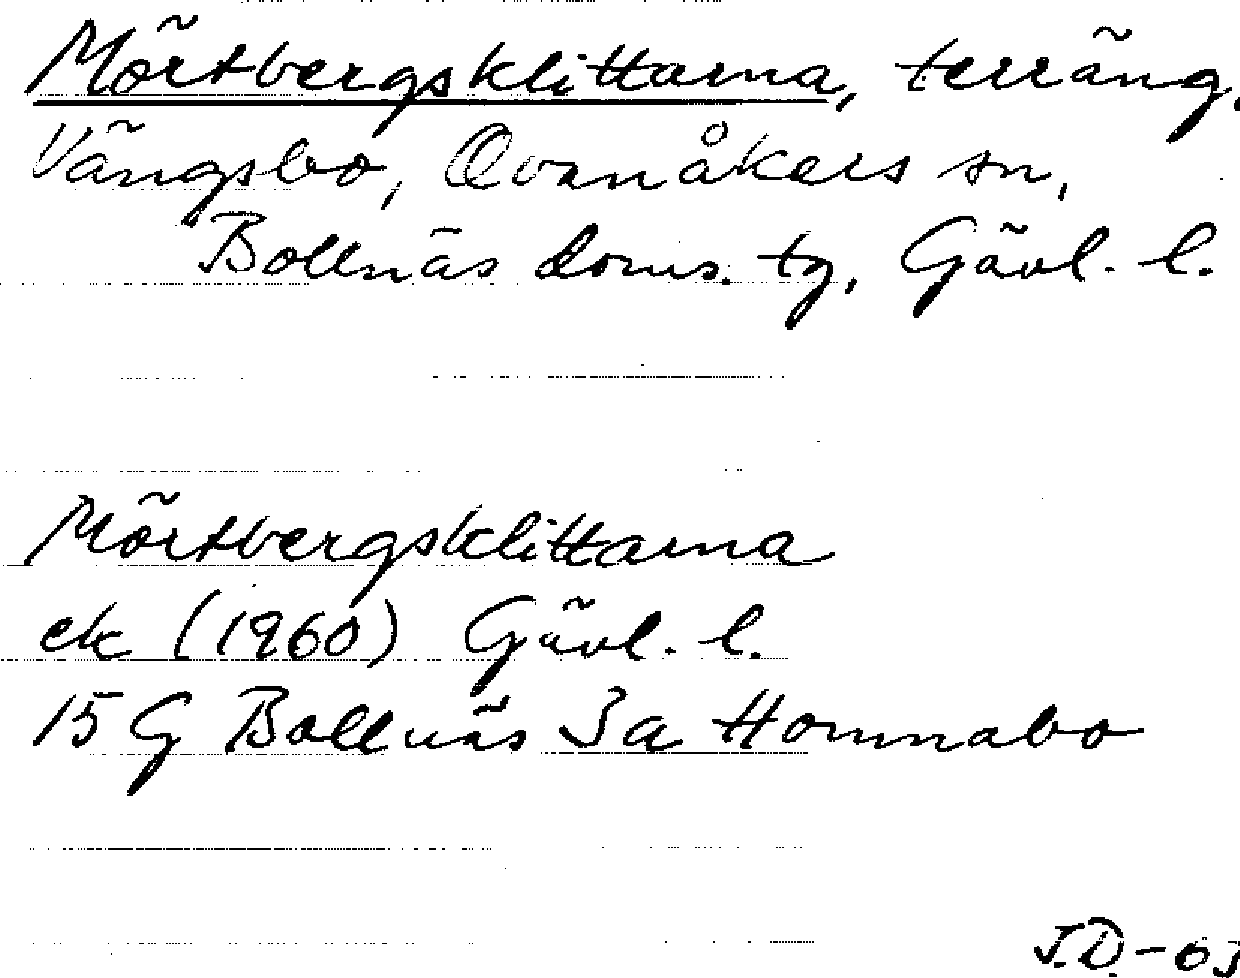 Mörtbergsklittarna, terräng,
Vängsbo, Ovanåkers sn,
Bollnäs doms. tg, Gävl. l.
Mörtbergsklittarna
ek (1960) Gävl. l.
15 G Bollnäs 3a Homnabo
J.D.-63